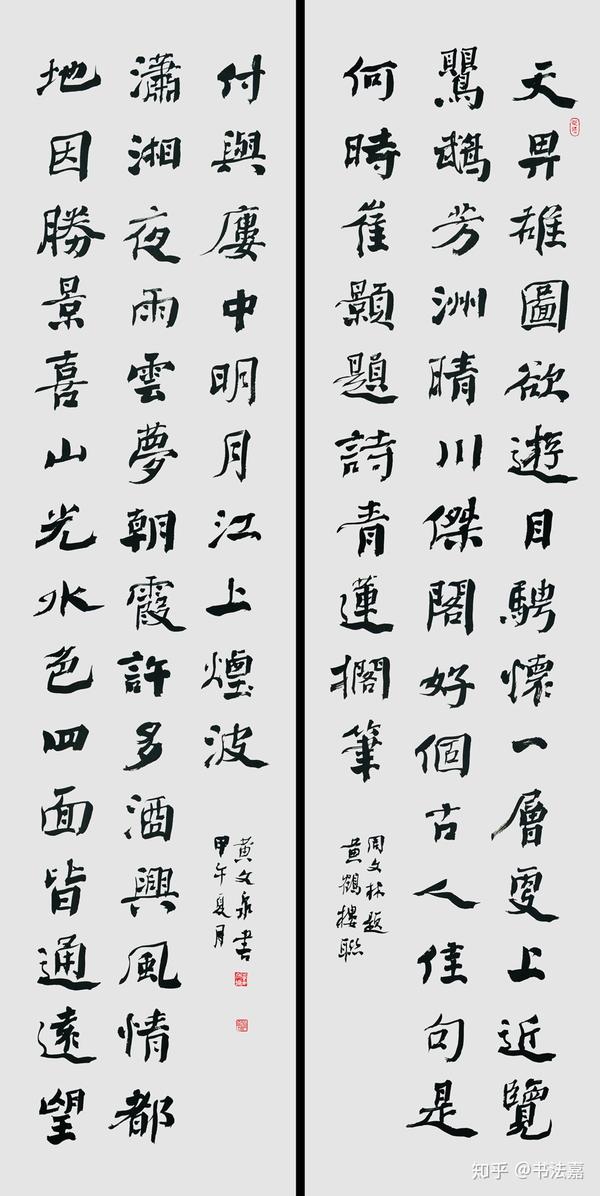 天畀雄圖欲遊目騁懷一層更上近覽
鸚鵡芳洲晴川傑閣好個古人佳句是
何時崔顥題詩青蓮擱筆
周文林題
黄鶴樓聯
地因勝景喜山光水色四面皆通遠望
瀟湘夜雨雲夢朝霞許多酒興風情都
付與廔中明月江上煙波
甲午夏月
黄文泉書
知乎 @书法嘉